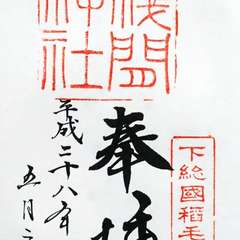 浅間
神社
奉拝
下総國稲毛
平成二十八年
五月